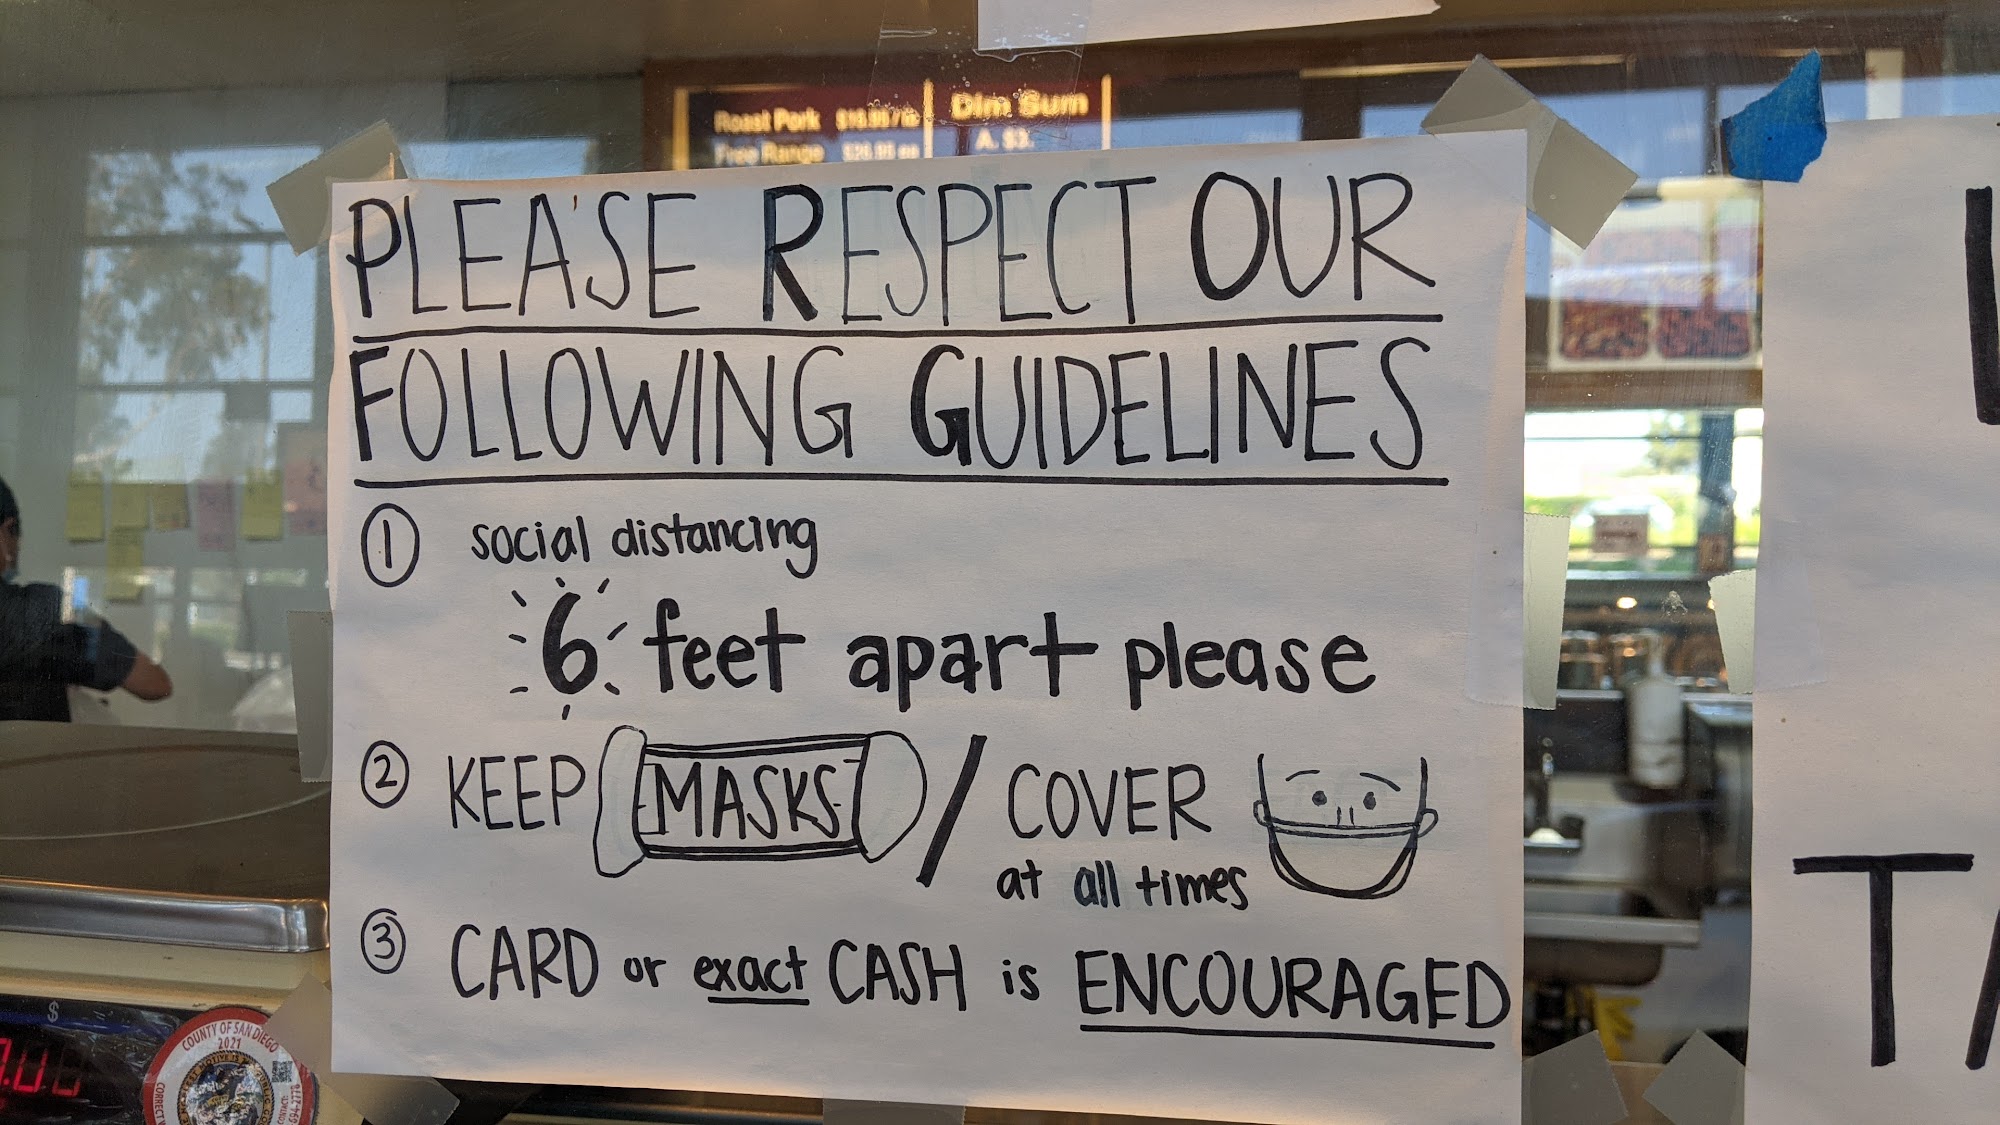 Roast Pork
Free Range
Dim Sum
A. $3.
PLEASE RESPECT OUR
FOLLOWING GUIDELINES
① social distancing
6 feet apart please
② KEEP MASKS / COVER
at all times
③ CARD or exact CASH is ENCOURAGED
T
$
COUNTY OF SAN DIEGO
2021